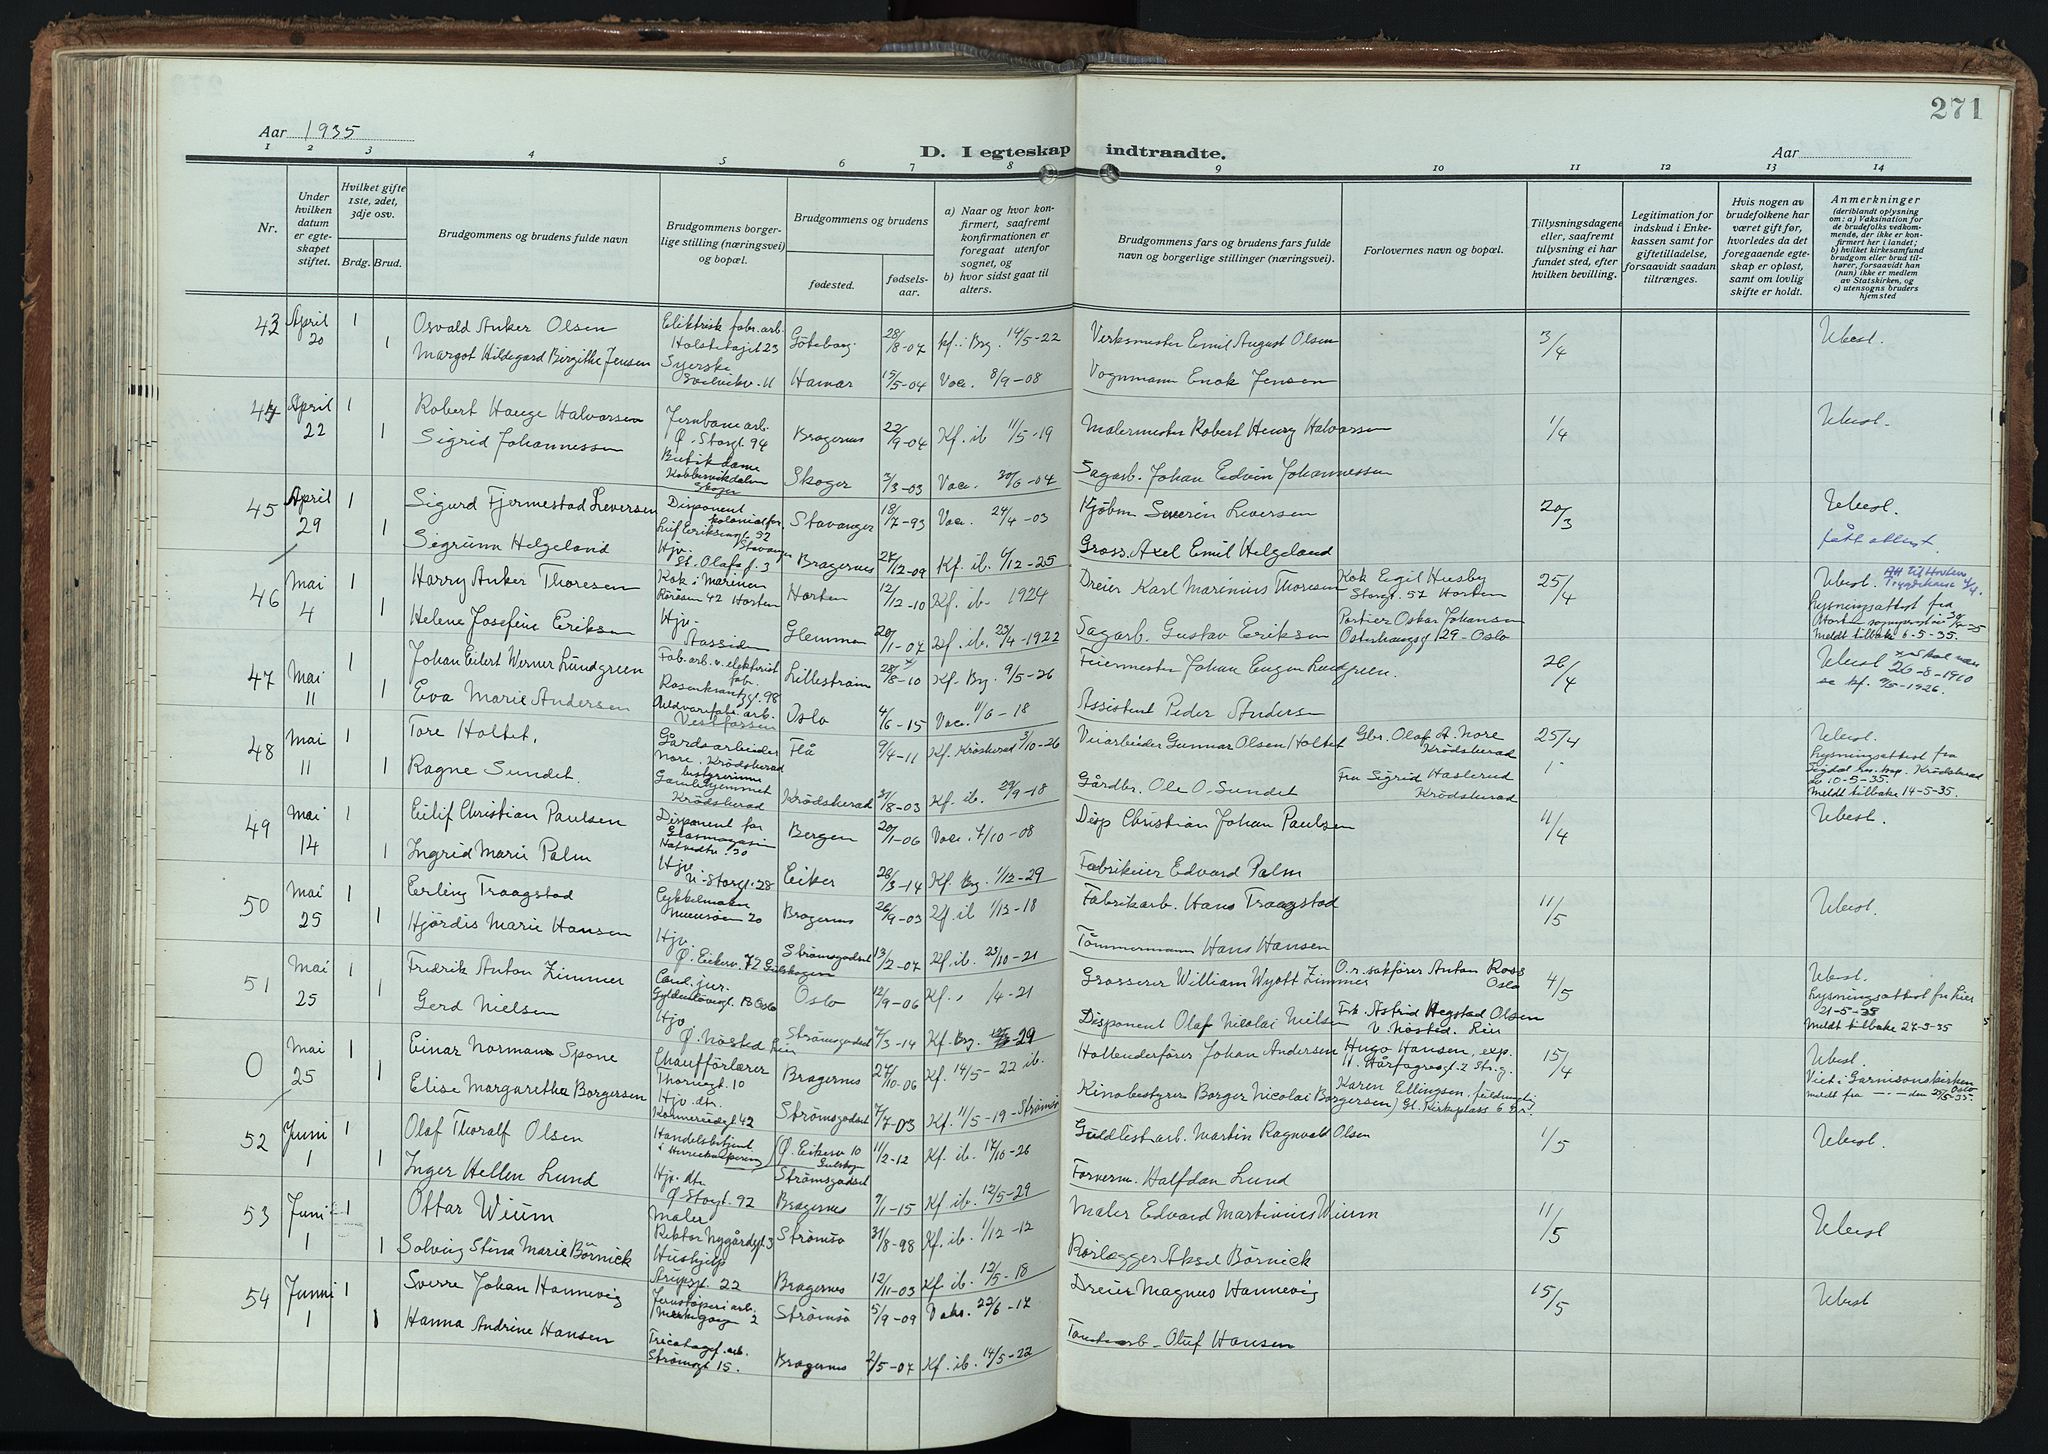 271
Aar 1935
D. I egteskap indtraadte.
Aar
1 2 3 4 5 6 7 8 9 10 11 12 13 14
Nr.
Under hvilken datum er egteskapet stiftet.
Hvilket gifte 1ste, 2det, 3dje osv.
Brdg. Brud.
Brudgommens og brudens fulde navn
Brudgommens borgerlige stilling (næringsvei) og bopæl.
Brudgommens og brudens
fødested.
fødselsaar.
a) Naar og hvor konfirmert, saafremt konfirmationen er foregaat utenfor sognet, og
b) hvor sidst gaat til alters.
Brudgommens fars og brudens fars fulde navn og borgerlige stillinger (næringsvei).
Forlovernes navn og bopæl.
Tillysningsdagene eller, saafremt tillysning ei har fundet sted, efter hvilken bevilling.
Legitimation for indskud i Enkekassen samt for giftetilladelse, forsaavidt saadan tiltrænges.
Hvis nogen av brudefolkene har været gift før, hvorledes da det foregaaende egteskap er opløst, samt om lovlig skifte er holdt.
Anmerkninger
(deriblandt oplysning om: a) Vaksination for de brudefolks vedkommende, der ikke er konfirmert her i landet; b) hvilket kirkesamfund brudgom eller brud tilhører, forsaavidt han (hun) ikke er medlem av Statskirken, og c) utensogns bruders hjemsted
43 April 20 1 Osvald Anker Olsen Elektrisk fabr. arb. Göteborg 28/8-07 Kf. i Brg. 14/5-22 Verksmester Emil August Olsen 3/4 Ubest.
1 Margot Hildegard Birgitte Jensen Syerske Hamar 15/5-04 Vac. 8/9-08 Vognmann Enok Jensen
44 April 22 1 Robert Hauge Halvorsen Jernbanearb. Ø. Storgt. 94 Bragernes 22/9-04 Kf. ib. 11/5-19 Malermester Robert Henry Halvorsen 1/4 Ubest.
1 Sigrid Johannessen Butikdame Kobbervikdalen Skoger Skoger 3/3-03 Vac. 30/6-04 Sagarb. Johan Edvin Johannessen
45 April 29 1 Sigurd Fjermestad Seversen Disponent kolonialfor. Leif Eriksensgt. 52 Stavanger Stavanger 18/7-93 Vac. 24/4-03 Kjøbm. Severin Seversen 20/3 Ubest.
1 Sigrunn Helgeland Hjv. St. Olafs g. 3 Bragernes 27/12-09 Kf. ib. 6/12-25 Gross. Axel Emil Helgeland fått attest.
46 Mai 4 1 Harry Anker Thoresen Kok i Marinen Rørøsen 42 Horten Horten 12/12-10 Kf. ib. 1924 Dreier Karl Marinius Thoresen Kok Eigil Husby Storgt. 57 Horten 25/4 Ubest. Att til Horten Trygdekasse
Helene Josefine Eriksen Hjv. Aassiden Glemmen 20/1-07 Kf. ib. 23/4-1922 Sagarb. Gustav Eriksen Portier Oskar Johansen Osterhausgt 29 - Oslo Lysningsattest fra Horten Meldt tilbake 6-5-35.
47 Mai 11 1 Johan Eilert Werner Lundgreen Fab. arb. v. elektrisk fab. Rosenkrantzgt. 98 Lillestrøm 28/8-10 Kf. Brg. 9/5-26 Feiermester Johan Eugen Lundgreen. 26/4 Ubest x skal være 26-8-1910 se kf. 9/5-1926.
1 Eva Marie Andersen Vestfossen Oslo 4/6-15 Vac. 11/6-18 Assistent Peder Andersen
48 Mai 11 1 Tore Holtet. Gårdsarbeider Nore. Krødsherad Flå 9/4-11 Kf. Krødsherad 3/10-26 Veiarbeider Gunnar Olsen Holtet Gbr. Olaf A. Nore Krødsherad 25/4 Ubest.
1 Ragne Sundet. bestyrerinne Gamlehjemmet Krødsherad Krødsherad 31/8-03 Kf. ib. 29/9-18 Gårdbr. Ole O. Sundet Fru Sigrid Haslerud Krødsherad Lysningsattest fra Sigdal res. kap. Krødsherad 10-5-35. Meldt tilbake 14-5-35.
49 Mai 14 1 Eilif Christian Paulsen Disponent for Glasmagasin Bergen 20/1-06 Vac. 7/10-08 Disp Christian Johan Paulsen 4/4 Ubest.
1 Ingrid Marie Palm Hjv. N. Storgt. 28 Eiker 28/3-14 Kf. Brg. 1/12-29 Fabrikeier Edvard Palm
50 Mai 25 1 Erling Traagstad Bragernes 26/9-03 Kf. ib 1/12-18 Fabrikarb. Hans Traagstad 11/5 Ubest.
1 Hjørdis Marie Hansen Hjv. Ø. Eikerv. 72 Gulskogen Strømsgodset 13/2-07 Kf. ib. 23/10-21 Tømmermann Hans Hansen
51 Mai 25 1 Fredrik Anton Zimmer Cand. jur. Gyldenløvesgt. 13 Oslo Oslo 12/9-06 Kf. „ /4-21 Grosserer William Wyatt Zimmer O. r. sakfører Anton Ross Oslo 4/5 Ubest.
1 Gerd Nielsen Hjv. Ø. Nøsted Lier Strømsgodset 7/3-14 Kf. Brg. -29 Disponent Olaf Nicolai Nielsen Frk. Astrid Hegstad Olsen V. Nøsted. Lier Lysningsattest fra Lier 21-5-35 Meldt tilbake 27-5-35
0 Mai 25 1 Einar Norman Spone Chaufførlærer Thornegt. 10 Bragernes 27/10-06 Kf. 14/5-22 ib. Hollenderfører Johan Andersen Hugo Hansen, exp. H. Hårfagresgt. 2 Str.g. 15/4 Ubest.
1 Elise Margarethe Borgersen Hjv. dtr. Konnerudgt 42 Strømsgodset 7/7-03 Kf. 11/5-19-Strømsø Kinobestyrer Borger Nicolai Borgersen Karen Ellingsen, Gl. Kirkeplass 6 Dr. Viet i Garnisonskirken Oslo meldt fra — den 25/5-35.
52 Juni 1 1 Olaf Thoralf Olsen Handelsbetjent Ø. Eikerv 10 Gulskogen Strømsgodset 11/2-12 Kf. ib. 17/10-26 Guldlistarb. Martin Ragnvald Olsen 1/5 Ubest.
1 Inger Hellen Lund Hjv. dtr. Ø Storgt. 92 Bragernes 9/1-15 Kf. ib. 12/5-29 Forverm. Halfdan Lund
53 Juni 1 1 Ottar Wium Maler Rektor Nygårdsgt. 3 Strømsø 31/8-98 Kf. ib. 1/12-12 Maler Edvard Martinius Wium 11/5 Ubest
1 Solveig Stina Marie Börnick Hushjelp Arupsgt. 22 Bragernes 12/11-03 Kf. ib. 12/5-18 Rørlægger Aksel Börnick
54 Juni 1 1 Sverre Johan Hannevig Jernstøperiarb. Strømsø 5/9-09 Vaks. 22/6-17 Dreier Magnus Hannevig 15/5 Ubest
1 Hanna Andrine Hansen Tricotagef. arb. Strømsgt 15. Bragernes 2/5-07 Kf. ib. 14/5-22 Oluf Hansen